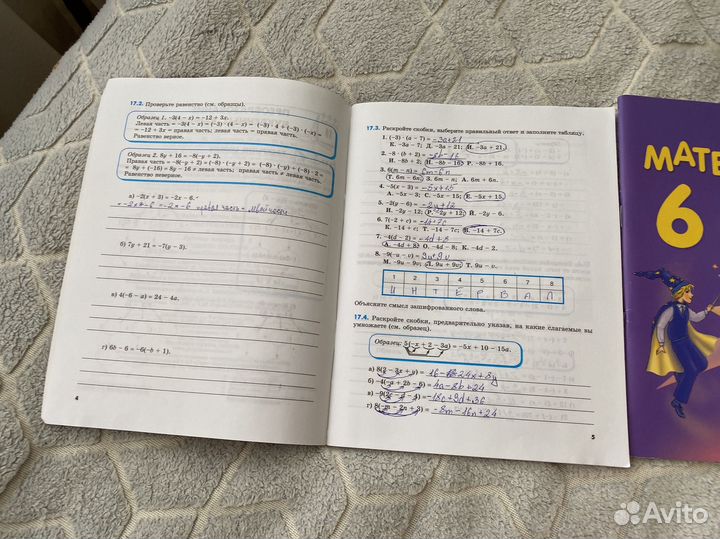 17.2. Проверьте равенство (см. образцы).
Образец 1. -3(4 − x) = −12 + 3x.
Левая часть = −3(4 − x) = (−3) · (4 − x) = (−3) · 4 + (−3) · (−x) =
= −12 + 3x = правая часть; левая часть = правая часть.
Равенство верное.
Образец 2. 8y + 16 = −8(−y + 2).
Правая часть = −8(−y + 2) = (−8) · (−y + 2) = (−8) · (−y) + (−8) · 2 =
= 8y + (−16) = 8y − 16 ≠ левая часть; правая часть ≠ левая часть.
Равенство неверное.
а) −2(x + 3) = −2x − 6.
= −2x − 6 = −2x − 6 правая часть = левой части
б) 7y + 21 = −7(y − 3).
в) 4(−6 − a) = 24 − 4a.
г) 6b − 6 = −6(−b + 1).
4
17.3. Раскройте скобки, выберите правильный ответ и заполните таблицу.
1. (−3) · (a − 7) = −3a+21
К. −3a − 7; Д. −3a + 21; И. −3a + 21.
2. −8 · (b + 2) = −8b−16
И. −8b + 2; Н. −8b − 16; Р. −8b + 16.
3. 6(m − n) = 6m−6n
Т. 6m − 6n; З. 6m − n; А. 6m + 6n.
4. −5(x − 3) = −5x+15
А. −5x − 3; С. −5x − 15; Е. −5x + 15.
5. −2(y − 6) = −2y+12
И. −2y − 12; Р. −2y + 12; Й. −2y − 6.
6. 7(−2 + c) = −14+7c
К. −14 + c; Т. −14 − 7c; В. −14 + 7c.
7. −4(d − 2) = −4d+8
А. −4d + 8; О. −4d − 8; К. −4d − 2.
8. −9(−u − v) = 9u+9v
М. −9u − 9v; Л. 9u + 9v; Т. 9u − v.
1 2 3 4 5 6 7 8
И Н Т Е Р В А Л
Объясните смысл зашифрованного слова.
17.4. Раскройте скобки, предварительно указав, на какие слагаемые вы
умножаете (см. образец).
Образец: 5(−x + 2 − 3a) = −5x + 10 − 15a.
а) 8(2 − 3x + y) = 16−24x+8y
б) −4(−a + 2b − 6) = 4a−8b+24
в) = −18c+9d+36
г) 8(−m − 2n + 3) = −8m−16n+24
5
МАТЕ
6
Avito